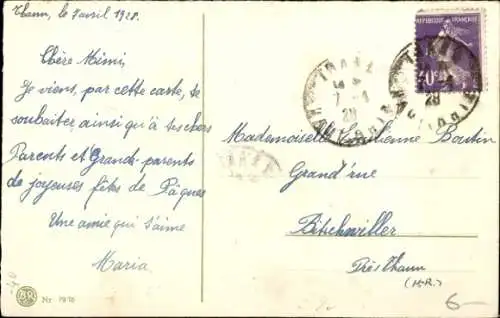 Thann, le 7 avril 1928.
Chère Mimi,
Je viens, par cette carte, te
souhaiter, ainsi qu'à tes chers
Parents et Grands-parents
de joyeuses fêtes de Pâques
Une amie qui t'aime
Maria.
Nr. 7876
REPUBLIQUE FRANÇAISE
40c
THANN
7-4
28
Mademoiselle Boutin
Grand'rue
Bitschwiller
Près Thann
(H-R.)
6-